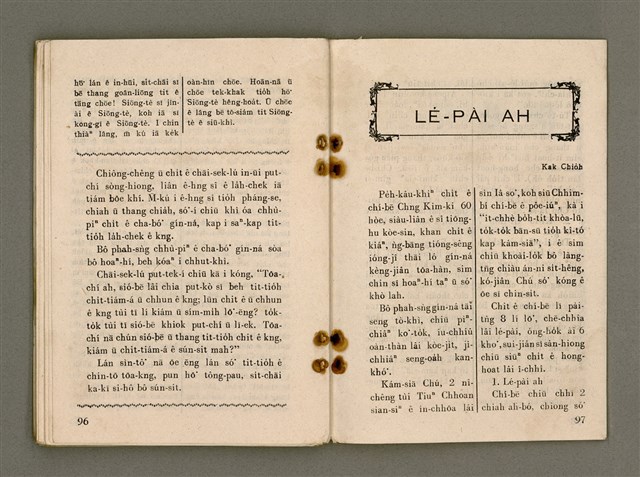 hō͘ lán ê in-hūi, si̍t-chāi sī
bē thang goân-liōng tit ê
tāng chōe! Siōng-tè, sī jîn-
ài ê Siōng-tè, koh iā sī
kong-gī ê Siōng-tè. I chin
thiàⁿ lâng, m̄ kú iā kek
oàn-hīn chōe. Hoān-nā ū
chōe tek-khak tio̍h hō͘
Siōng-tè hêng-hoa̍t. Ū chōe
ê lâng bē tò-siám tit Siōng-
tè ê siū-khì.
Chiông-chêng ū chi̍t ê châi-sek-lú in-ūi put-
chí sòng-hiong, liân ê-hng sī ê la̍h-chek iā
tiám bōe khí. M̄-kú i ê-hng sī tio̍h pháng-se,
chiah ū thang chia̍h, só͘-í chiū khì óa chhù-
piⁿ chi̍t ê cha-bó͘ gín-ná, kap i saⁿ-kap tit-
tio̍h la̍h-chek ê kng.
Bô phah-sǹg chhù-piⁿ ê cha-bó͘ gín-ná sòa
bô hoaⁿ-hí, beh kóaⁿ i chhut-khì.
Châi-sek-lú put-tek-í chiū kā i kóng, "Tōa-
chí ah, sió-bē lâi chia put-kò sī beh tit-tio̍h
chit-tiám-á ū chhun ê kng; lūn chit ê ū chhun
ê kng tùi tī lí kiám ū sím-mih lō͘-ēng? to̍k-
to̍k tùi tī sió-bē khiok put-chí ū lī-ek. Tōa-
chí nā chún sió-bē ū thang tit-tio̍h chit ê kng,
kiám ū chi̍t-tiám-á ê sún-sit mah?"
Lán sìn-tô͘ nā ōe ēng lán só͘ tit-tio̍h ê
chin-tō tōa-kng, pun hō͘ tông-pau, si̍t-chāi
ka-kī sī-hô bô sún-sit.
96
LÉ-PÀI AH
Kak Chio̍h
Pe̍h-káu-khiⁿ chi̍t ê
chí-bē Chng Kim-kí 60
hòe, siàu-liân ê sî tiōng-
hu kòe-sin, khan chi̍t ê
kiáⁿ, ǹg-bāng tiông-sêng
ióng-jī thāi lō gín-ná
kèng-jiân tōa-hàn, sim
chin sī hoaⁿ-hí taⁿ ū só͘
khò lah.
Bô phah-sǹg gín-ná tāi
seng tò-khì, chiū piⁿ-
chiâⁿ ko͘-to̍k, iu-chhiû
oàn-thàn lâi kòe-ji̍t, jī-
chhiáⁿ seng-oa̍h kan-
khó͘.
Kám-siā Chú, 2 nî-
chêng tùi Tiuⁿ Chhoan
sian-siⁿ ê ín-chhōa lâi
sìn Iâ so͘, koh siū Chhím-
bí chí-bē ê pôe-iúⁿ, kà i
"it-chhè bo̍h-tit khòa-lū,
to̍k-to̍k bān-sū tio̍h kî-tó
kap kám-siā", i ê sim
chiū khoài-lo̍k bô lâng-
tn̂g chiàu án-ni sit-hêng,
kó-jiân Chú só͘ kóng ê
ōe sī chin-si̍t.
Chit ê chí-bē lī pài-
tn̂g 8 lí lō͘, chē-chhia
lâi lé-pài, óng-ho̍k ài 6
kho͘, sui-jiân sī sàn-hiong
chiū siūⁿ chi̍t ê hong-
hoat lâi î-chhî.
1. Lé-pài ah
Chí-bē chiū chhī 2
chiah ah-bó, chiong só͘
97